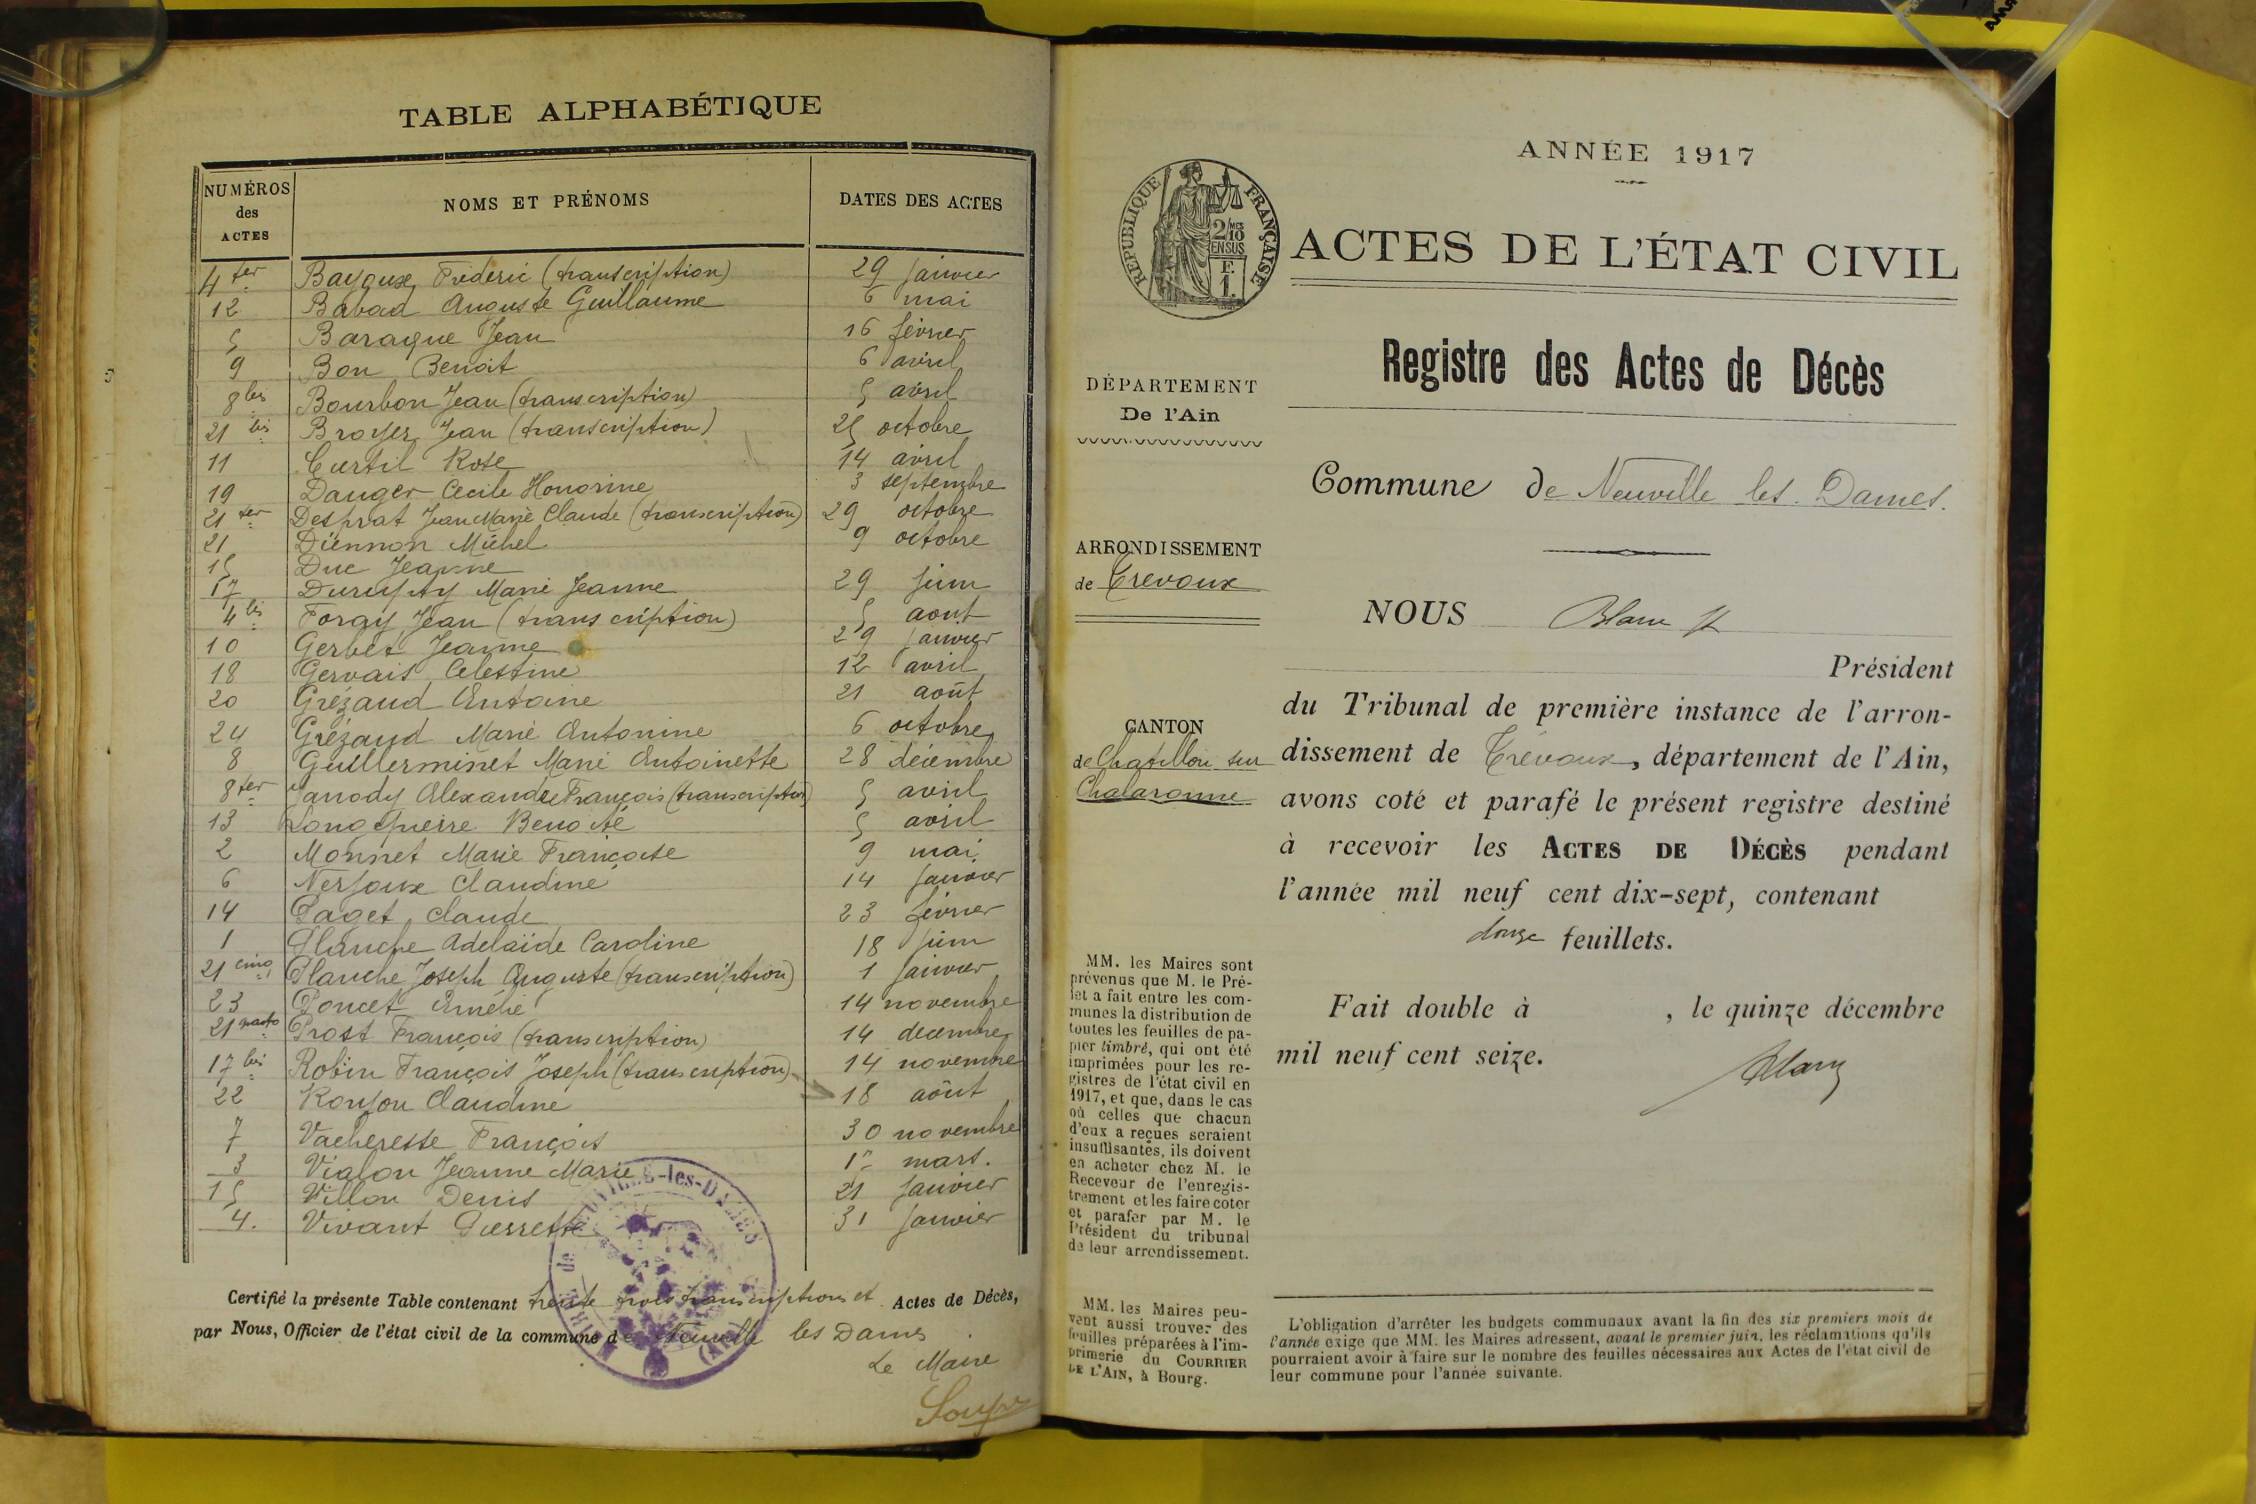 TABLE ALPHABÉTIQUE
NUMÉROS des ACTES NOMS ET PRÉNOMS DATES DES ACTES
4 ter Bayoux Frédéric (transcription) 29 janvier
12 Babad Auguste Guillaume 6 mai
5 Baraque Jean 16 février
9 Bon Benoit 6 avril
8 bis Bourbon Jean (transcription) 5 avril
21 bis Broyer Jean (transcription) 25 octobre
11 Curtil Rose 14 avril
19 Dauger Cecile Honorine 3 septembre
21 ter Desprat Jean Marie Claude (transcription) 29 octobre
21 Diennon Michel 9 octobre
15 Duc Jeanne
17 Durupty Marie Jeanne 29 juin
4 bis Foray Jean (transcription) 5 aout
10 Gerbet Jeanne 29 janvier
18 Gervais Celestine 12 avril
20 Grézaud Antoine 21 août
24 Grézaud Marie Antonine 6 octobre
8 Guillerminet Marie Antoinette 28 décembre
8 ter Janody Alexandre François (transcription) 5 avril
13 Longepierre Benoite 5 avril
2 Monnet Marie Françoise 9 mai
6 Nerjoux Claudine 14 janvier
14 Paget Claude 23 février
1 Planche Adelaïde Caroline 18 juin
21 cinq Planche Joseph Auguste (transcription) 1 janvier
23 Poncet Emélie 14 novembre
21 quarto Prost François (transcription) 14 decembre
17 bis Robin François Joseph (transcription) 14 novembre
22 Roujou Claudine 18 août
7 Vacheresse François 30 novembre
3 Vialon Jeanne Marie 1er mars.
15 Villon Denis 21 janvier
4. Vivant Pierrette 31 janvier
Certifié la présente Table contenant trente trois transcriptions et Actes de Décès,
par Nous, Officier de l'état civil de la commune de Neuville les Dames
Le Maire
ANNÉE 1917
RÉPUBLIQUE FRANÇAISE
2/10 MES
EN SUS
F.
1.
ACTES DE L'ÉTAT CIVIL
Registre des Actes de Décès
DÉPARTEMENT
De l'Ain
Commune de Neuville les Dames.
ARRONDISSEMENT
de Trevoux
NOUS Blanc
Président
du Tribunal de première instance de l'arron-
dissement de Trévoux, département de l'Ain,
avons coté et parafé le présent registre destiné
à recevoir les ACTES DE DÉCÈS pendant
l'année mil neuf cent dix-sept, contenant
douze feuillets.
Fait double à , le quinze décembre
mil neuf cent seize.
CANTON
de Chatillon sur
Chalaronne
MM. les Maires sont
prévenus que M. le Pré-
fet a fait entre les com-
munes la distribution de
toutes les feuilles de pa-
pier timbré, qui ont été
imprimées pour les re-
gistres de l'état civil en
1917, et que, dans le cas
où celles que chacun
d'eux a reçues seraient
insuffisantes, ils doivent
en acheter chez M. le
Receveur de l'enregis-
trement et les faire coter
et parafer par M. le
Président du tribunal
de leur arrondissement.
MM. les Maires peu-
vent aussi trouver des
feuilles préparées à l'im-
primerie du COURRIER
DE L'AIN, à Bourg.
L'obligation d'arrêter les budgets communaux avant la fin des six premiers mois de
l'année exige que MM. les Maires adressent, avant le premier juin, les réclamations qu'ils
pourraient avoir à faire sur le nombre des feuilles nécessaires aux Actes de l'état civil de
leur commune pour l'année suivante.